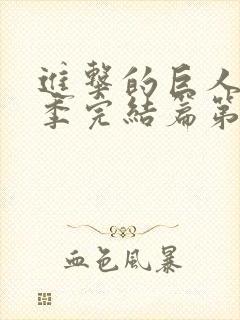 進擊的巨人
季完結篇第
血色風暴